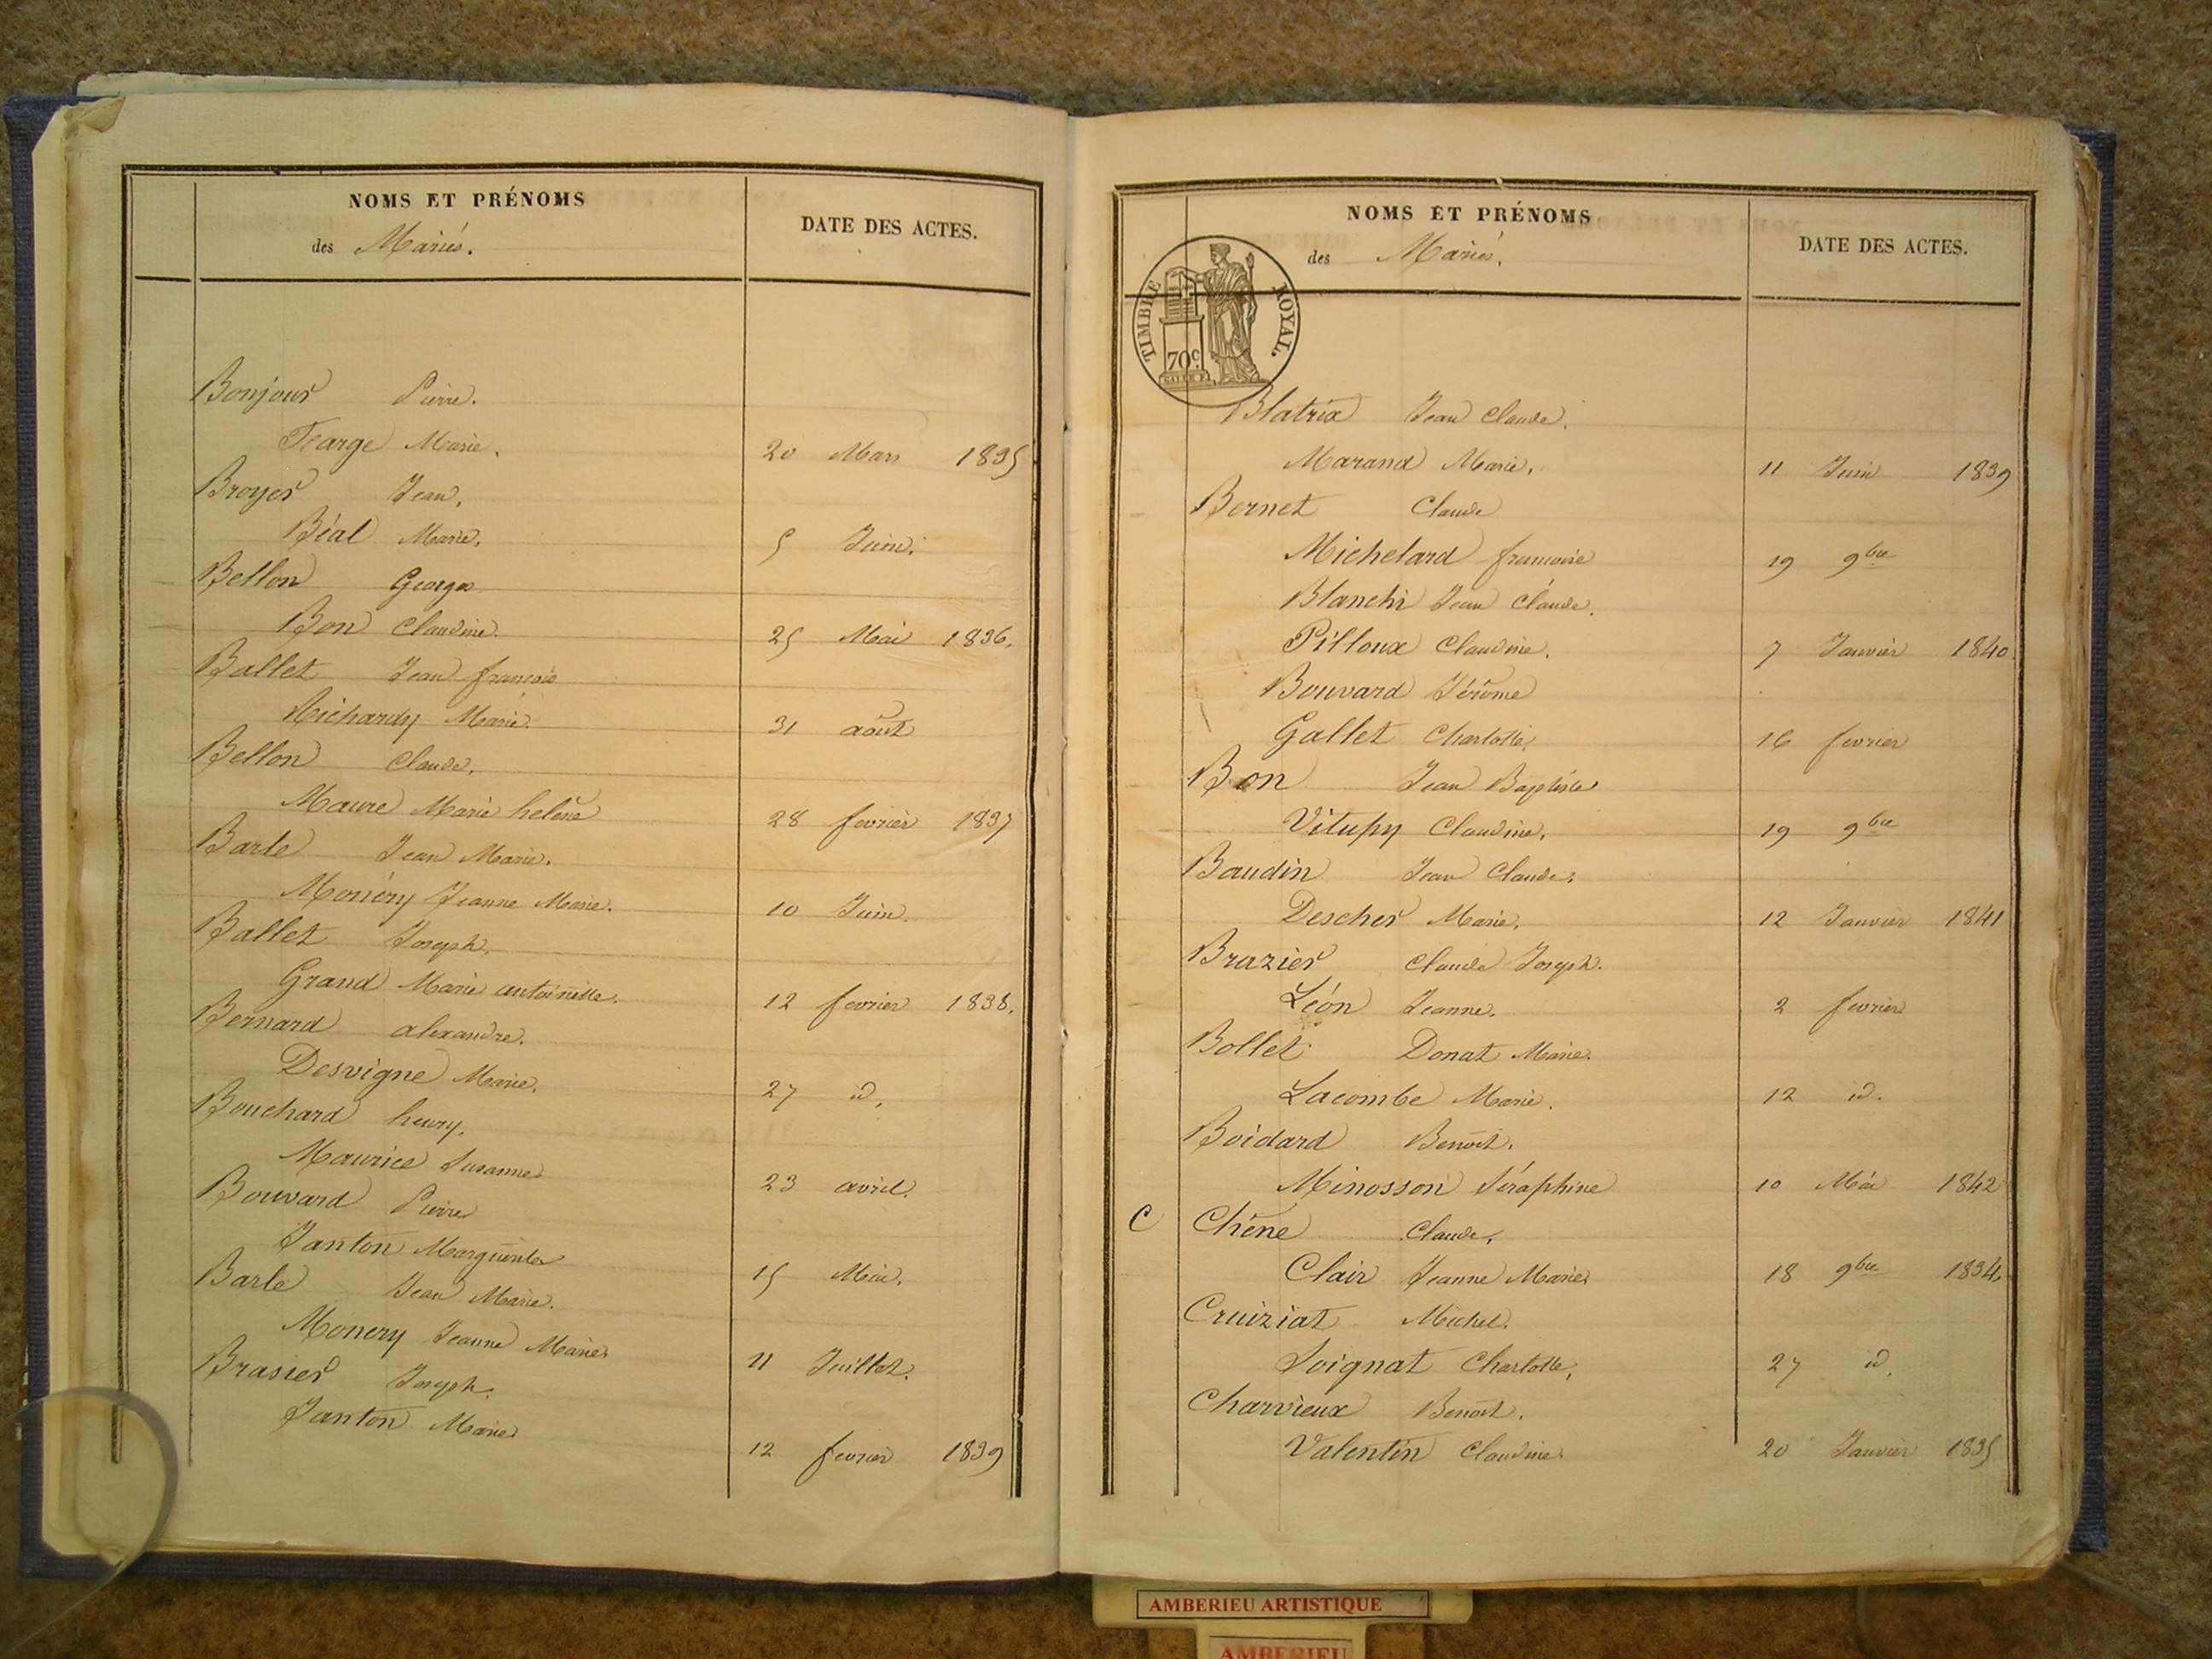 NOMS ET PRÉNOMS
des Mariés.
DATE DES ACTES.
Bonjour Pierre.
Farge Marie. 20 Mars 1835
Broyer Jean,
Béal Marie, 5 Juin.
Bellon Georges
Bon Claudine. 25 Mai 1836.
Ballet Jean françois
Richardy Marie. 31 août
Bellon Claude,
Maure Marie helène 28 fevrier 1837
Barle Jean Marie.
Monéry Jeanne Marie. 10 Juin.
Ballet Joseph,
Grand Marie antoinette. 12 fevrier 1838.
Bernard alexandre.
Desvigne Marie. 27 id,
Bouchard henry,
Maurice Susanne 23 avril.
Bouvard Pierre
Janton Marguerite 15 Mai.
Barle Jean Marie.
Monery Jeanne Marie 11 Juillet.
Brasier Joseph,
Janton Marie 12 fevrier 1839
NOMS ET PRÉNOMS
des Mariés.
DATE DES ACTES.
TIMBRE ROYAL.
70c.
Blatrix Jean Claude,
Marand Marie, 11 Juin 1839
Bernet Claude
Michelard francoise 19 9bre
Blanchi Jean Claude,
Pilloux Claudine, 7 Janvier 1840
Bouvard Jérôme
Gallet Charlotte, 16 fevrier
Bon Jean Baptiste
Vitupy Claudine, 19 9bre
Baudin Jean Claude,
Descher Marie, 12 Janvier 1841
Brazier Claude Joseph.
Léon Jeanne. 2 fevrier
Bollet Donat Marie.
Lacombe Marie. 12 id.
Boidard Benoit.
Minosson Séraphine 10 Mai 1842
C Chêne Claude,
Clair Jeanne Marie 18 9bre 1834
Cruiziat Michel.
Soignat Charlotte, 27 id.
Charvieux Benoit,
Valentin Claudine 20 Janvier 1835
AMBERIEU ARTISTIQUE
AMBERIEU